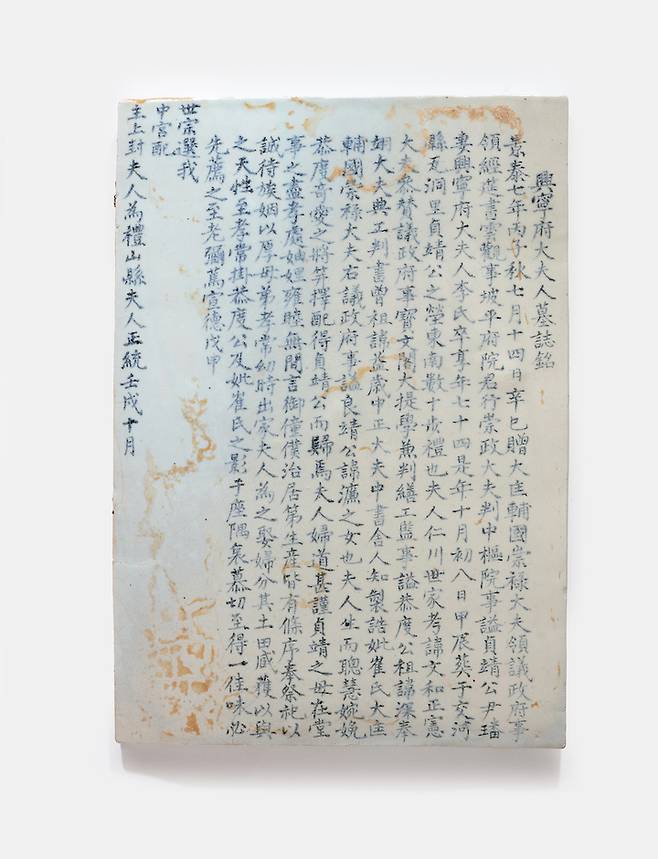 興寧府大夫人墓誌銘
景泰七年丙子秋七月十四日辛巳贈大匡輔國崇祿大夫領議政府事
領經筵書雲觀事坡平府院君行崇政大夫判中樞院事謚貞靖公尹璠
妻興寧府大夫人李氏卒享年七十四是年十月初八日甲辰葬于交河
縣瓦洞里貞靖公之塋東南數十步禮也夫人仁川世家考諱文和正憲
大夫叅贊議政府事寶文閣大提學兼判繕工監事謚恭度公祖諱深奉
翊大夫典正判書曾祖諱益歲中正大夫中書舍人知製誥妣崔氏大匡
輔國崇祿大夫右議政府事謚良靖公諱濂之女也夫人生而聰慧婉娩
恭度奇愛之將笄擇配得貞靖公而歸焉夫人婦道甚謹貞靖之母在堂
事之盡孝處妯娌雍睦無間言御僮僕治居第生産皆有條序奉祭祀以
誠待族姻以厚母弟孝常幼時出家夫人爲之娶婦分其土田臧獲以與
之天性至孝常掛恭度公及妣崔氏之影于座隅哀慕切至得一佳味必
先薦之至老彌篤宣德戊申
世宗選我
中宮配
主上封夫人爲禮山縣夫人正統壬戌十月